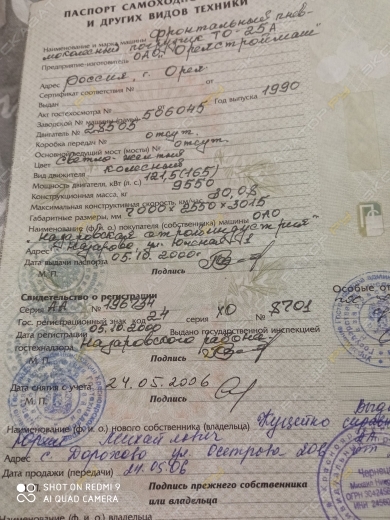 ПАСПОРТ САМОХОДНО
И ДРУГИХ ВИДОВ ТЕХНИКИ
Наименование и марка машины фронтальный пнев-
моколесный погрузчик ТО-25А
Предприятие-изготовитель ОАО "Орелстроймаш"
Адрес Россия, г. Орел.
Сертификат соответствия № от
Выдан
Акт гостехосмотра № Год выпуска 1990
Заводской № машины (рамы) 506045
Двигатель № 25505
Коробка передач № отсут.
Основной ведущий мост (мосты) № отсут.
Цвет светло-желтый
Вид движителя колесный
Мощность двигателя, кВт (л. с.) 121,5 (165)
Конструкционная масса, кг 9550
Максимальная конструктивная скорость, км/ч 30,08
Габаритные размеры, мм 7000×2550×3015
Наименование (ф. и. о.) покупателя (собственника) машины ОАО
"Назаровская агроминдустрия"
Адрес г. Назарово ул. Южная
Дата выдачи паспорта 05.10.2000г.
М. П. Подпись
Свидетельство о регистрации Особые от
Серия АА № 196134
Гос. регистрационный знак код 24 серия ХО № 8701
Дата регистрации 05.10.2000 Выдано государственной инспекцией
гостехнадзора Назаровского района
М. П. Подпись
Дата снятия с учета 24.05.2006
М. П. Подпись
Наименование (ф. и. о.) нового собственника (владельца)
Юрий Михайлович
Адрес с. Дорохово ул.
Дата продажи (передачи) 24.05.06
М. П. Подпись прежнего собственника
или владельца
SHOT ON REDMI 9
AI QUAD CAMERA
Наименование (ф. и. о.) владельца)